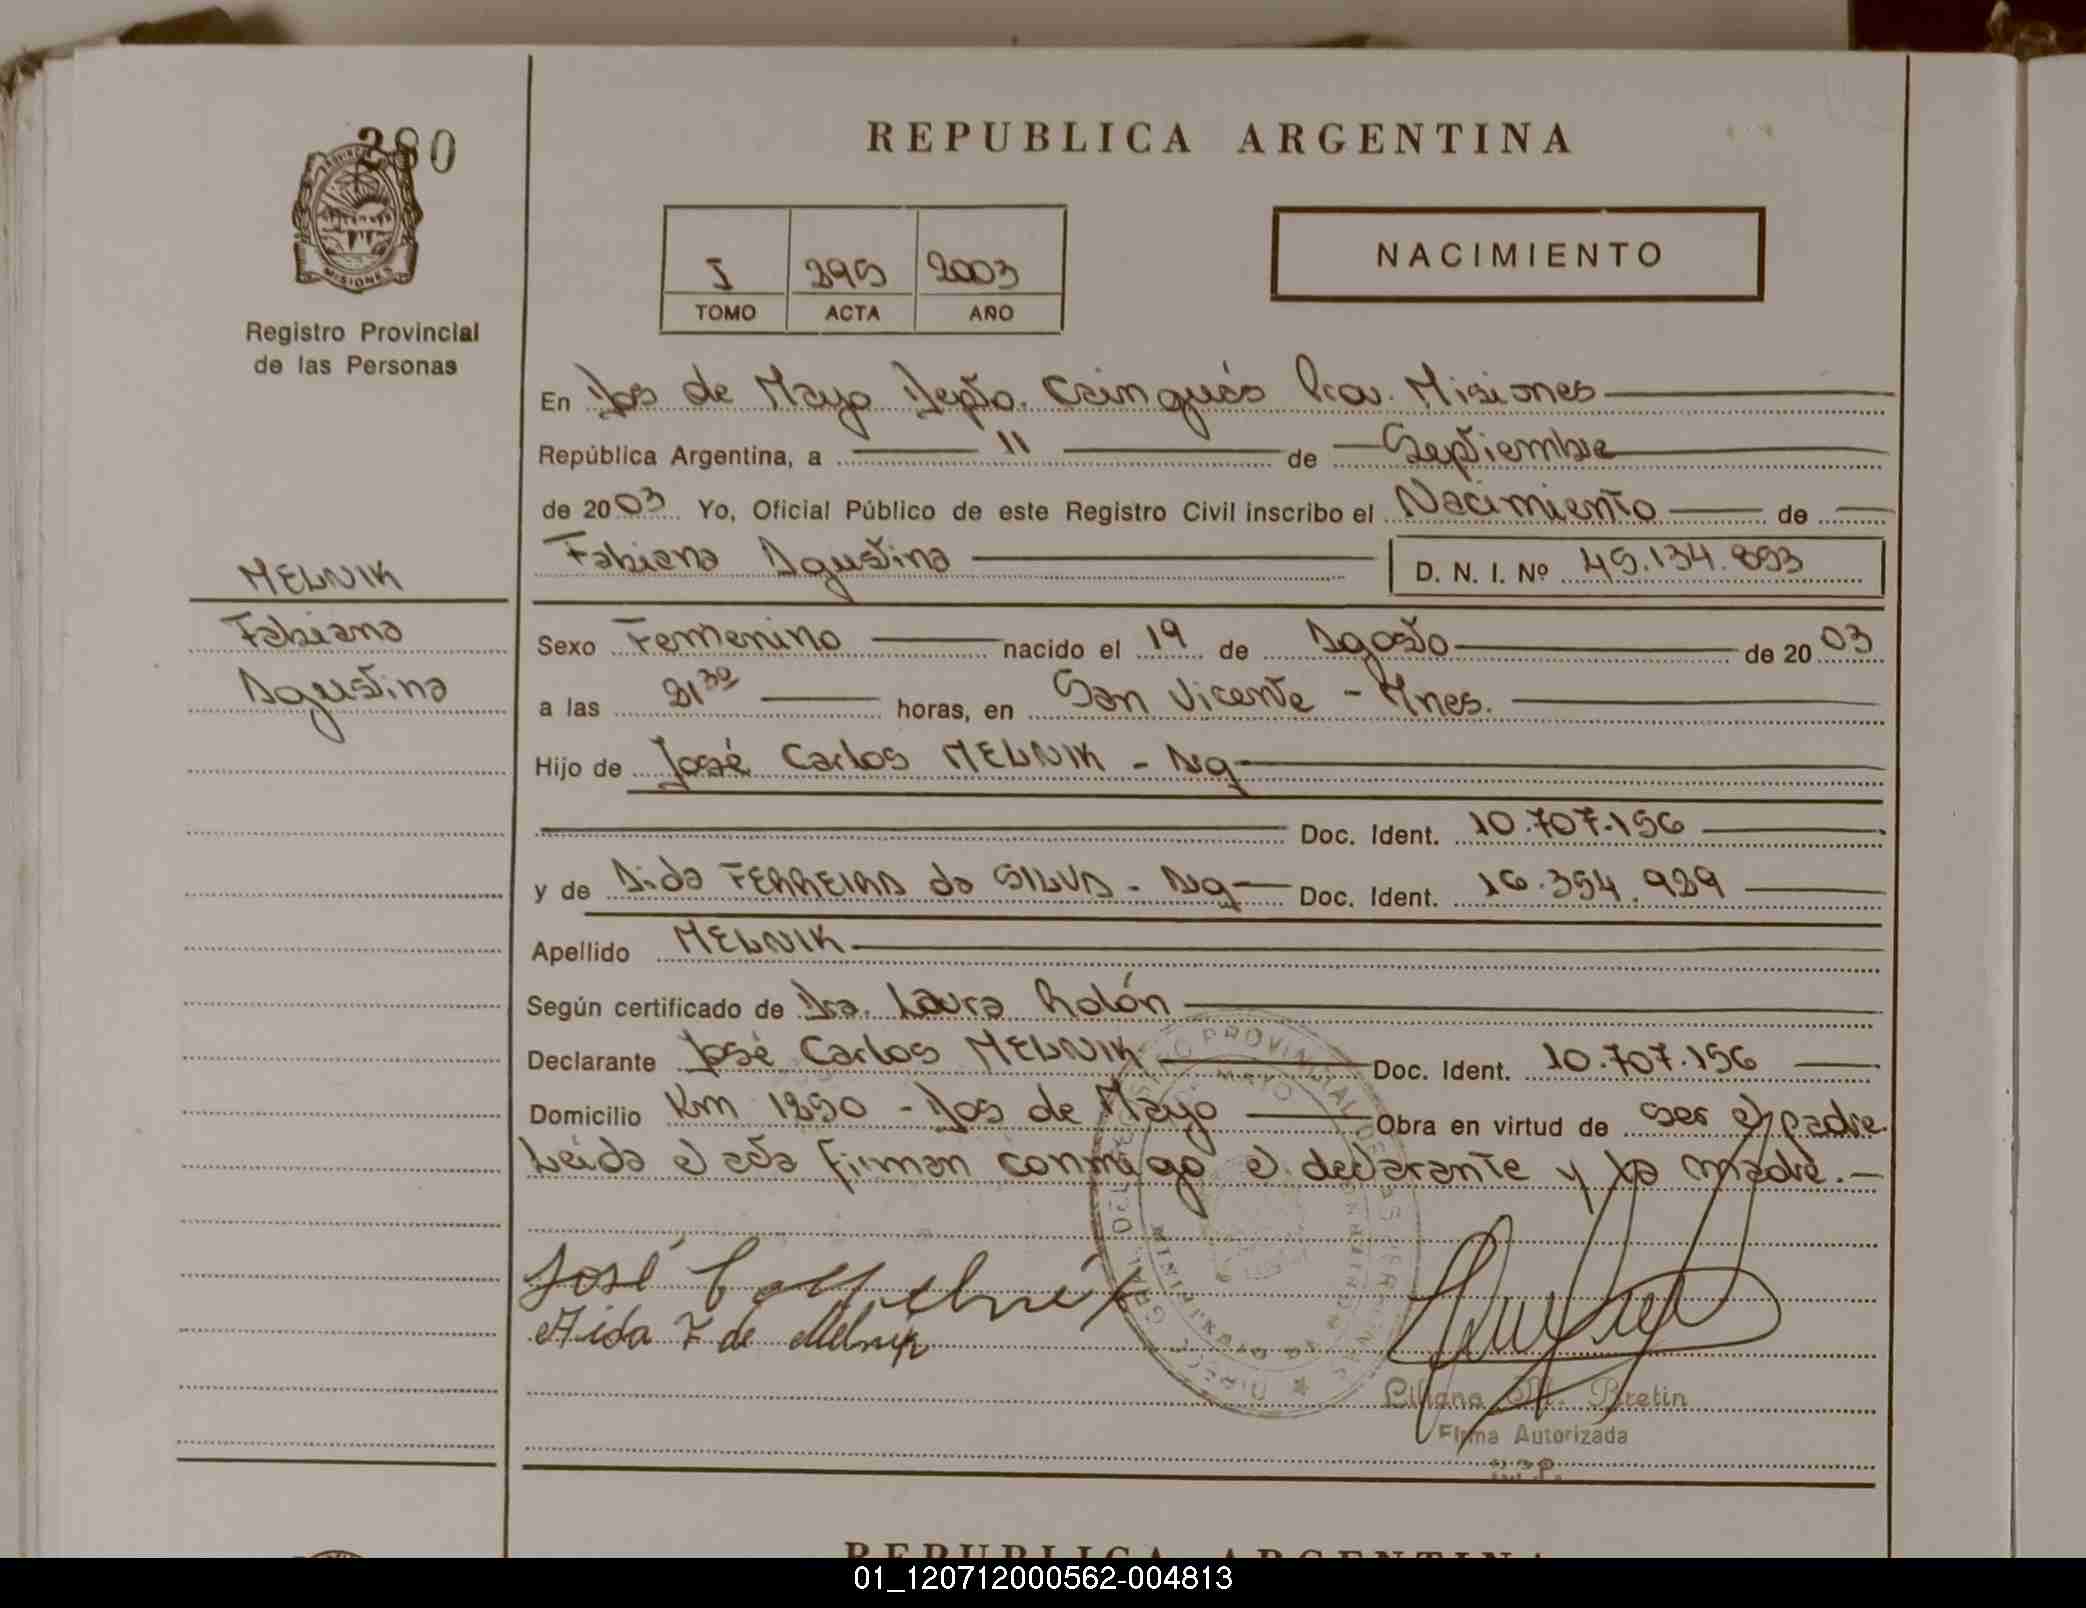 280
REPUBLICA ARGENTINA
I 295 2003
TOMO ACTA AÑO
NACIMIENTO
MISIONES
Registro Provincial
de las Personas
En Dos de Mayo Depto. Cainguás Prov. Misiones
República Argentina, a 11 de Septiembre
de 2003 Yo, Oficial Público de este Registro Civil inscribo el Nacimiento de
Fabiana Agustina D. N. I. Nº 45.134.853
MELNIK
Fabiana
Agustina
Sexo Femenino nacido el 19 de Agosto de 2003
a las 21 30 horas, en San Vicente - Mnes.
Hijo de José Carlos MELNIK - Arg
Doc. Ident. 10.707.156
y de Aida FERREIRA da SILVA - Arg Doc. Ident. 16.354.929
Apellido MELNIK
Según certificado de Dra. Laura Rolón
Declarante José Carlos MELNIK Doc. Ident. 10.707.156
Domicilio Km 1250 - Dos de Mayo Obra en virtud de ser el padre.
Leida el acta firman conmigo el declarante y la madre.-
José C Melnik
Aida F de Melnik
Liliana M. Bretin
Firma Autorizada
R.P.P.
REPUBLICA ARGENTINA
01_120712000562-004813